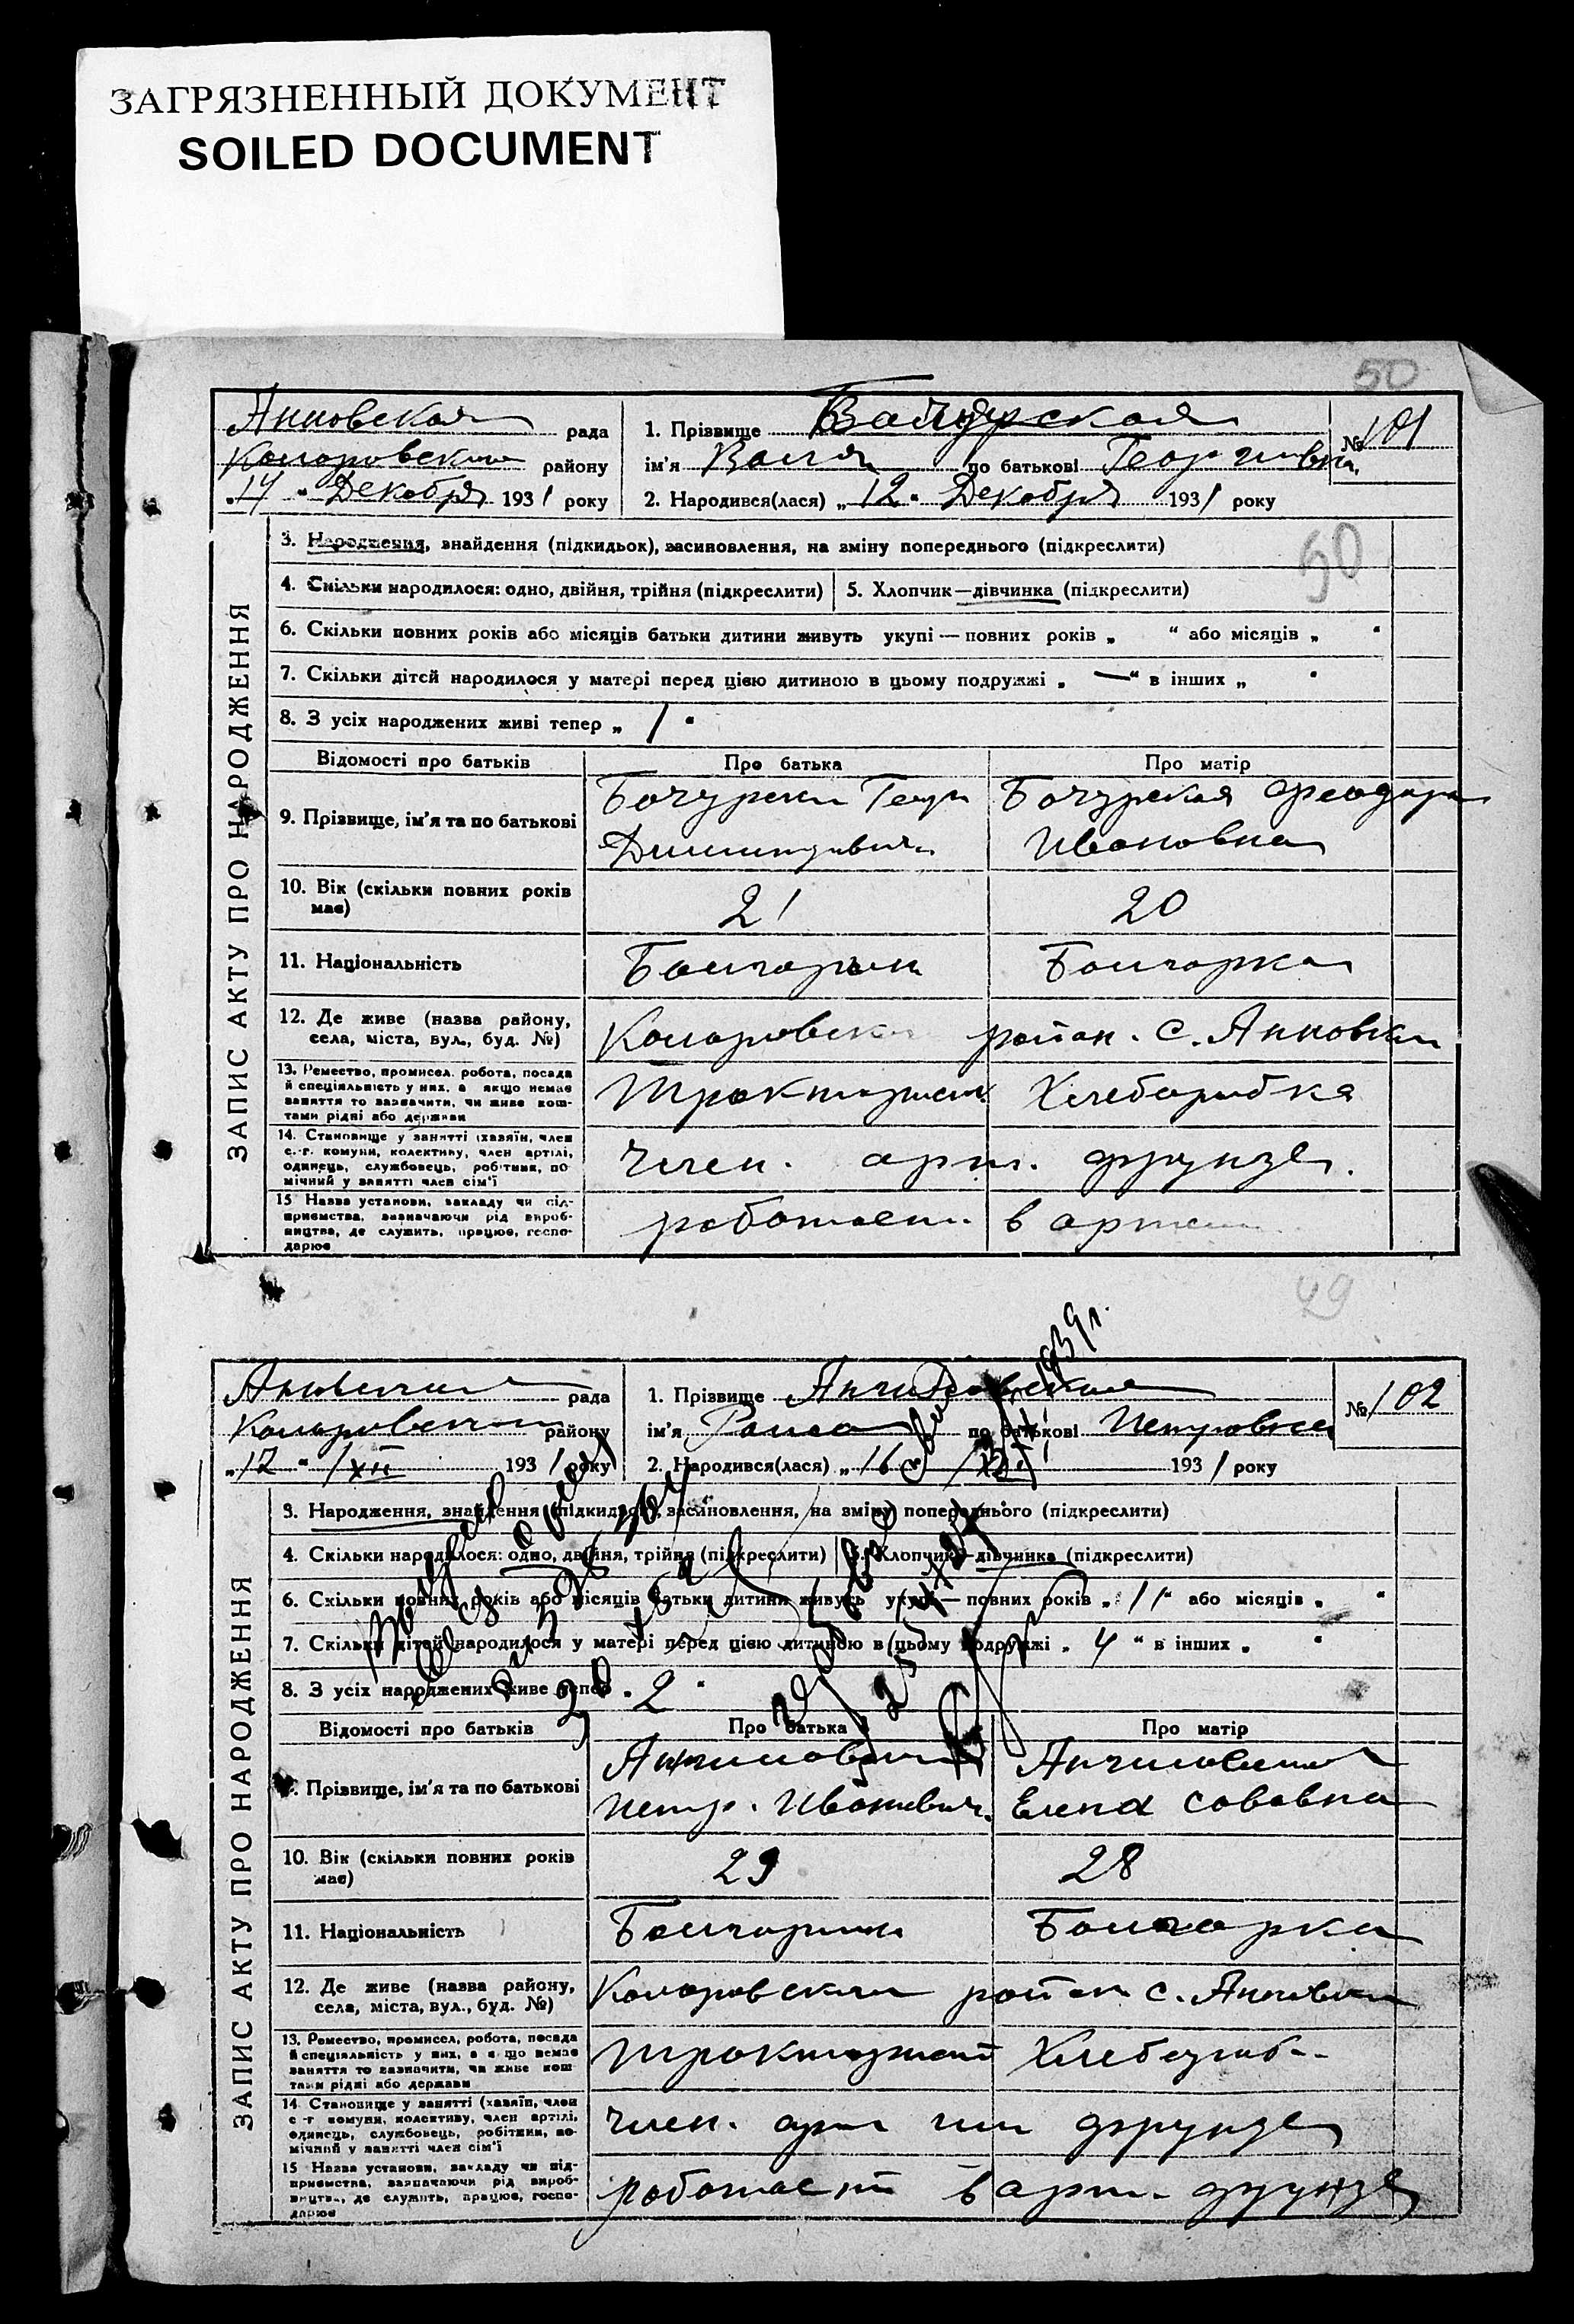 ЗАГРЯЗНЕННЫЙ ДОКУМЕНТ
SOILED DOCUMENT
50
Анновская рада
Коларовского району
„14“ Декабря 1931 року
1. Прізвище Бачурская
№ 101
ім'я Валя по батькові Георгиевна
2. Народився(лася) „12“ Декабря 1931 року
50
ЗАПИС АКТУ ПРО НАРОДЖЕННЯ
3. Народження, знайдення (підкидьок), засиновлення, на зміну попереднього (підкреслити)
4. Скільки народилося: одно, двійня, трійня (підкреслити)
5. Хлопчик—дівчинка (підкреслити)
6. Скільки повних років або місяців батьки дитини живуть укупі — повних років „ “ або місяців „ “
7. Скільки дітей народилося у матері перед цією дитиною в цьому подружжі „ — “ в інших „ “
8. З усіх народжених живі тепер „ 1 “
Відомості про батьків Про батька Про матір
9. Прізвище, ім'я та по батькові
Бочурски Георги
Бочурская Феодора
Ивановна
10. Вік (скільки повних років має)
21 20
11. Національність
Болгарин Болгарка
12. Де живе (назва району, села, міста, вул., буд. №)
Коларовски район. с. Анновки
13. Ремество, промисел, робота, посада й спеціяльність у них, а якщо немає заняття то зазначити, чи живе коштами рідні або держави
Тракторист Хлеборобка
14. Становище у занятті (хазяїн, член с.-г. комуни, колективу, член артілі, одинець, службовець, робітник, помічний у занятті член сім'ї
член. арт. фрунзе.
15 Назва установи, закладу чи підприємства, зазначаючи рід виробництва, де служить, працює, господарює
работает в артели
49
Анновская рада
Коларовского району
„12“ /XII 1931 року
1. Прізвище Ангиловская
№ 102
ім'я Раиса по батькові Петровна
2. Народився(лася) „16 /XI 1931 року
1939г.
ЗАПИС АКТУ ПРО НАРОДЖЕННЯ
3. Народження, знайдення (підкидьок), засиновлення, на зміну попереднього (підкреслити)
4. Скільки народилося: одно, двійня, трійня (підкреслити)
5. Хлопчик—дівчинка (підкреслити)
6. Скільки повних років або місяців батьки дитини живуть укупі — повних років „ 11 “ або місяців „ “
7. Скільки дітей народилося у матері перед цією дитиною в цьому подружжі „ 4 “ в інших „ “
8. З усіх народжених живе тепер „ 2 “
Відомості про батьків Про батька Про матір
9. Прізвище, ім'я та по батькові
Петр. Иванович. Елена Сававна
10. Вік (скільки повних років має)
29 28
11. Національність
Болгарин Болгарка
12. Де живе (назва району, села, міста, вул., буд. №)
Коларовский район с. Анновки
13. Ремество, промисел, робота, посада й спеціяльність у них, а якщо немає заняття то зазначити, чи живе коштами рідні або держави
Тракторист Хлебороб.
14 Становище у занятті (хазяїн, член с.-г. комуни, колективу, член артілі, одинець, службовець, робітник, помічний у занятті член сім'ї
член. арт им фрунзе
15 Назва установи, закладу чи підприємства, зазначаючи рід виробництва, де служить, працює, господарює
работает в арт. фрунзе